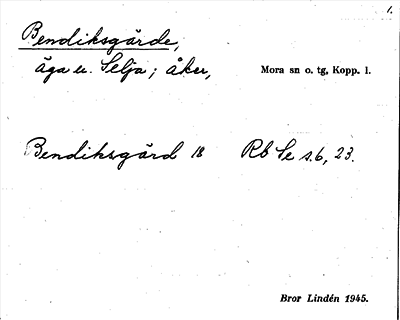 1.
Bendiksgärde,
äga u. Selja; åker,
Mora sn o. tg, Kopp. l.
Bendiksgärd 18 Rb Se s.6, 23.
Bror Lindén 1945.